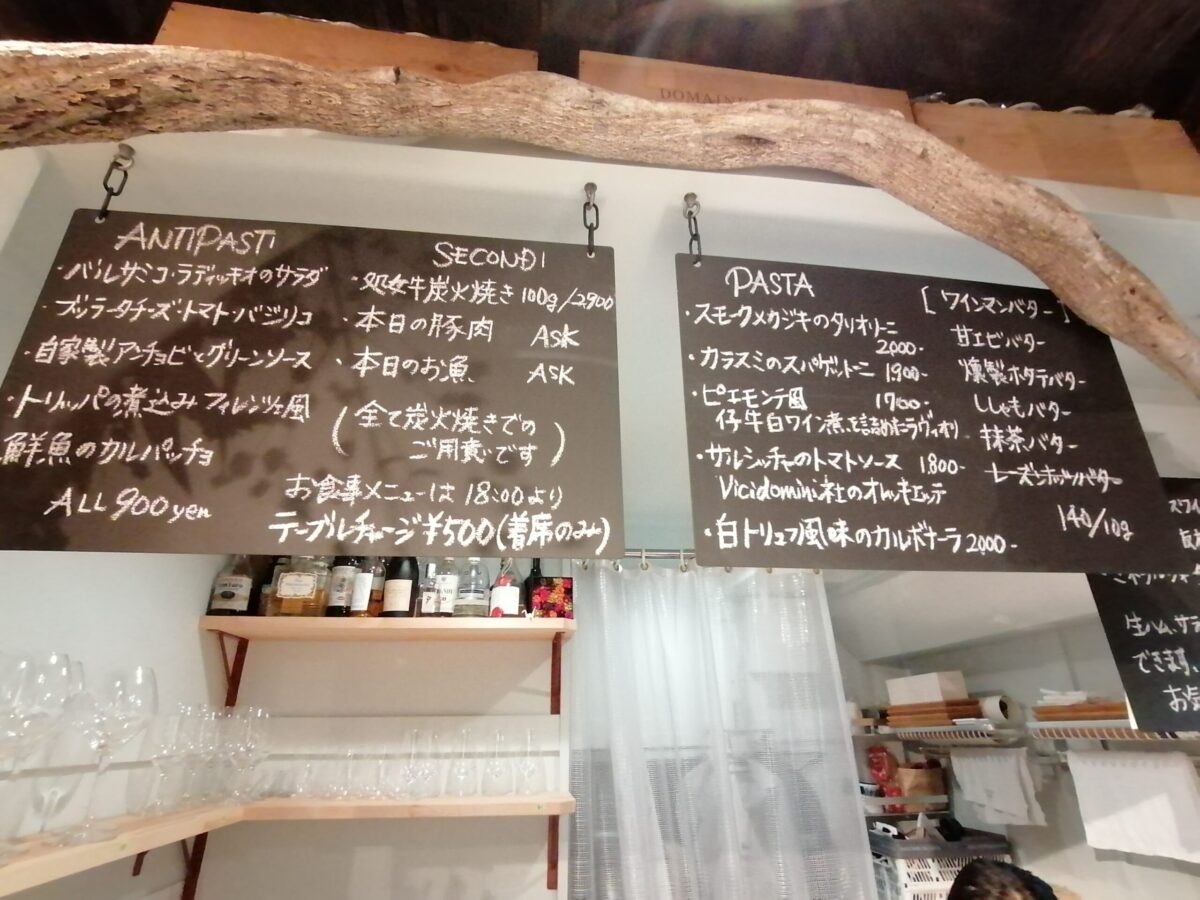 DOMAINE
ANTIPASTI
・バルサミコ・ラディッキオのサラダ
・ブッラータチーズ・トマト・バジリコ
・自家製アンチョビとグリーンソース
・トリッパの煮込み フィレンツェ風
鮮魚のカルパッチョ
ALL 900 yen
SECONDI
・処女牛炭火焼き 100g/2,900
・本日の豚肉 ASK
・本日のお魚 ASK
(全て炭火焼きでの
ご用意です)
お食事メニューは 18:00より
テーブルチャージ ¥500(着席のみ)
PASTA
・スモークメカジキのタリオリーニ
2,000-
・カラスミのスパゲットーニ 1,900-
・ピエモンテ風 1,700-
仔牛白ワイン煮を詰めたラヴィオリ
・サルシッチャのトマトソース 1,800-
Vicidomini社のオレッキエッテ
・白トリュフ風味のカルボナーラ 2,000-
[ワインマンバター]
甘エビバター
燻製ホタテバター
ししゃもバター
抹茶バター
140/10g
生ハム、サラ
できます、
お気